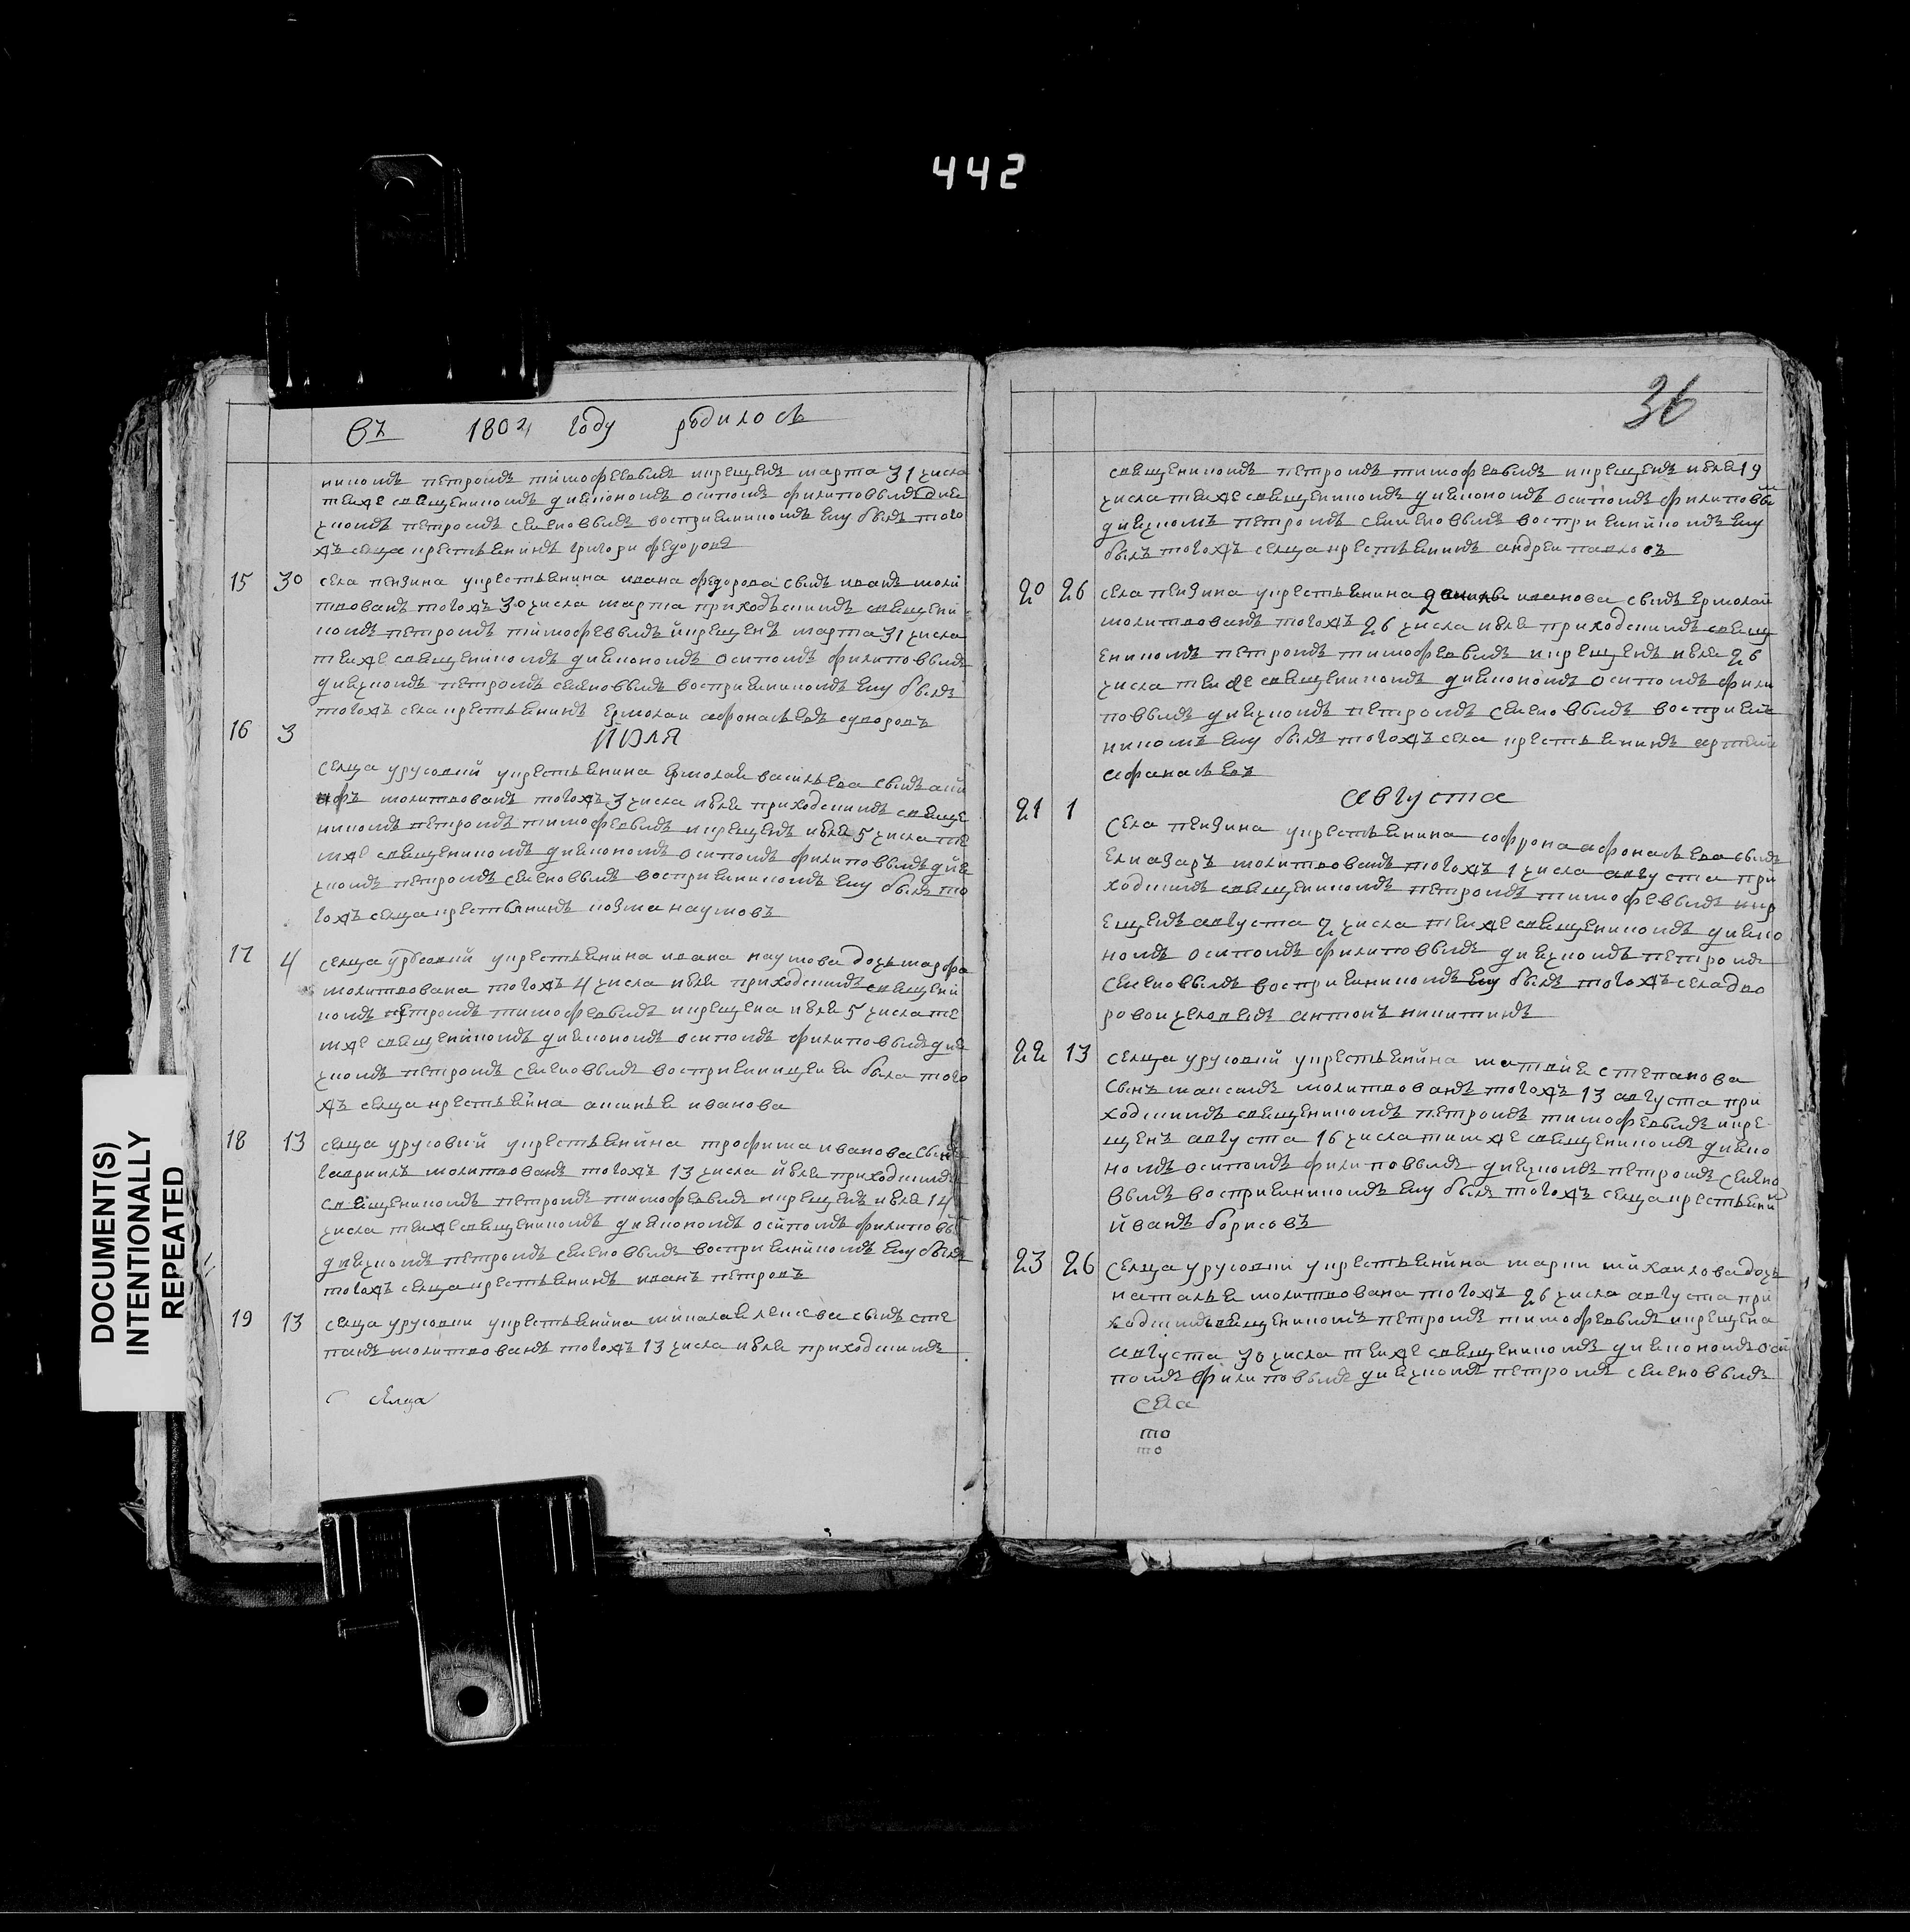 442
DOCUMENT(S)
INTENTIONALLY
REPEATED
въ 1802 году родилось
никомъ петромъ тимофеевымъ икрещенъ марта 31 числа
темже священникомъ диякономъ осипомъ филиповымъ дия
чкомъ петромъ семеновымъ восприемникомъ ему былъ того
жъ селца крестьянинъ григори федоровъ
15 30 села пензина укрестьянина ивана федорова сынъ иванъ моли
твованъ тогожъ 30 числа марта приходскимъ священи
комъ петромъ тимофеевымъ икрещенъ марта 31 числа
темже священикомъ диякономъ осипомъ филиповымъ
диячкомъ петромъ семеновымъ восприемникомъ ему былъ
тогожъ села крестьянинъ ермолаи афонасьевъ суворовъ
июля
16 3 селца урусовой укрестьянина ермолая васильева сынъ
молитвованъ тогожъ 3 числа июля приходскимъ священ
никомъ петромъ тимофеевымъ икрещенъ июля 5 числа те
мже священикомъ диякономъ осипомъ филиповымъ дия
чкомъ петромъ семеновымъ восприемникомъ ему былъ то
гожъ селца крестьянинъ козма наумовъ
17 4 селца урусовой укрестьянина ивана наумова дочь марфа
молитвована тогожъ 4 числа июля приходскимъ священи
комъ петромъ тимофеевымъ икрещена июля 5 числа те
мже священикомъ диякономъ осипомъ филиповымъ дия
чкомъ петромъ семеновымъ восприемницеи еи была того
жъ селца крестьянина аксинья иванова
18 13 селца урусовой укрестьянина трофима иванова сынъ
гавриилъ молитвованъ тогожъ 13 числа июля приходскимъ
священикомъ петромъ тимофеевымъ икрещенъ июля 14
числа темже священикомъ диякономъ осипомъ филиповы
диячкомъ петромъ семеновымъ восприемникомъ ему былъ
тогожъ селца крестьянинъ иванъ петровъ
19 13 селца урусовои укрестьянина николая сынъ сте
панъ молитвованъ тогожъ 13 числа июля приходскимъ
с селца
36
священикомъ петромъ тимофеевымъ икрещенъ июля 19
числа темже священикомъ диякономъ осипомъ филиповы
диячкомъ петромъ семеновымъ восприемникомъ ему
былъ тогожъ селца крестьянинъ андреи павловъ
20 26 села пензина укрестьянина иванова сынъ ермолаи
молитвованъ тогожъ 26 числа июля приходскимъ свящ
еникомъ петромъ тимофеевымъ икрещенъ июля 26
числа темже священикомъ диякономъ осипомъ фили
повымъ диячкомъ петромъ семеновымъ восприем
никомъ ему былъ тогожъ села крестьянинъ
афанасьевъ
августа
21 1 села пензина укрестьянина софрона афонасьева сынъ
елиазаръ молитвованъ тогожъ 1 числа августа при
ходскимъ священикомъ петромъ тимофеевымъ икр
ещенъ августа 2 числа темже священикомъ диако
номъ осипомъ филиповымъ диячкомъ петромъ
семеновымъ восприемникомъ ему былъ тогожъ села дво
ровои человекъ антонъ никитинъ
22 13 селца урусовой укрестьянина матвия степанова
сынъ максимъ молитвованъ тогожъ 13 августа при
ходскимъ священикомъ петромъ тимофеевымъ икре
щенъ августа 16 числа тимже священикомъ дияко
номъ осипомъ филиповымъ диячкомъ петромъ семено
вымъ восприемникомъ ему былъ тогожъ селца крестьяни
иванъ борисовъ
23 26 селца урусовой укрестьянина михаилова дочь
наталья молитвована тогожъ 26 числа августа при
ходскимъ священикомъ петромъ тимофеевымъ икрещена
августа 30 числа темже священикомъ диякономъ оси
помъ филиповымъ диячкомъ петромъ семеновымъ
села
то
то